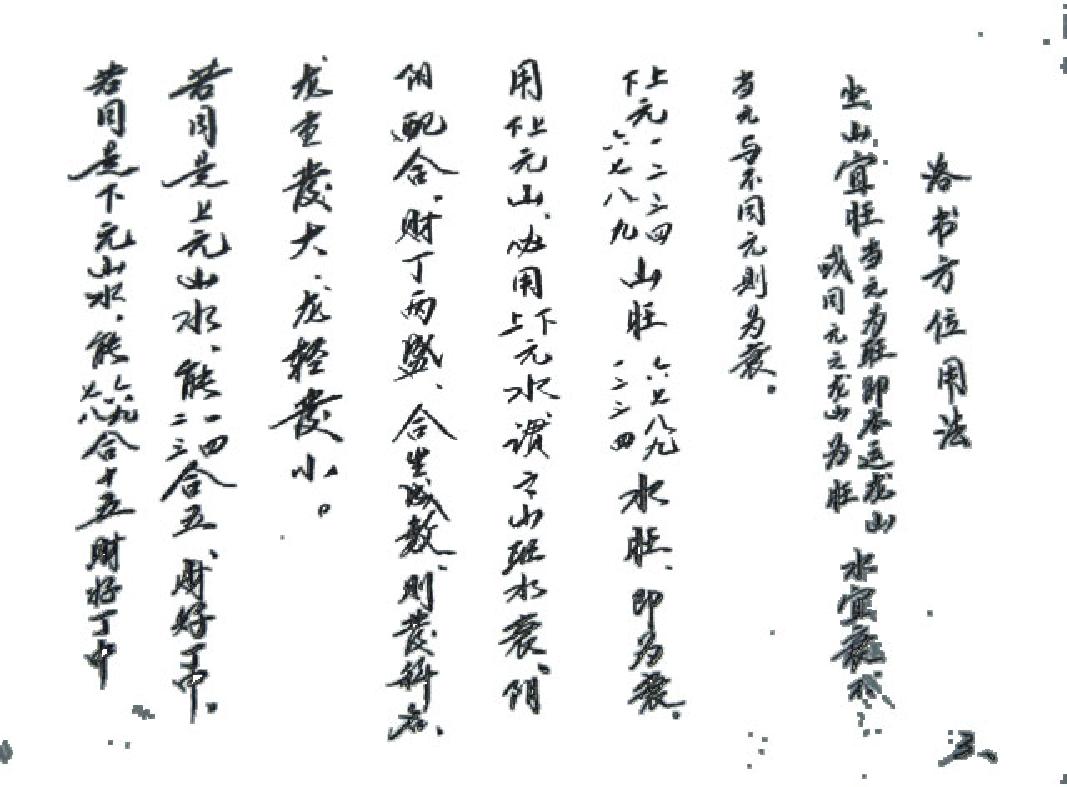 洛书方位用法
坐山宜旺当元为旺即本运龙山或同元之龙山为旺水宜衰不
当元与不同元则为衰。
上元一二三四下六七八九山旺六七八九一二三四水旺、即为衰。
用上下元山、必用下上元水谓之山旺水衰、阴
阳配合、财丁两盛、合生成数、则发科名、
龙重发大、龙轻发小。
若用是上元山水、能一四二三合五、财好丁中。
若用是下元山水、能六九七八合十五财好丁中
三、